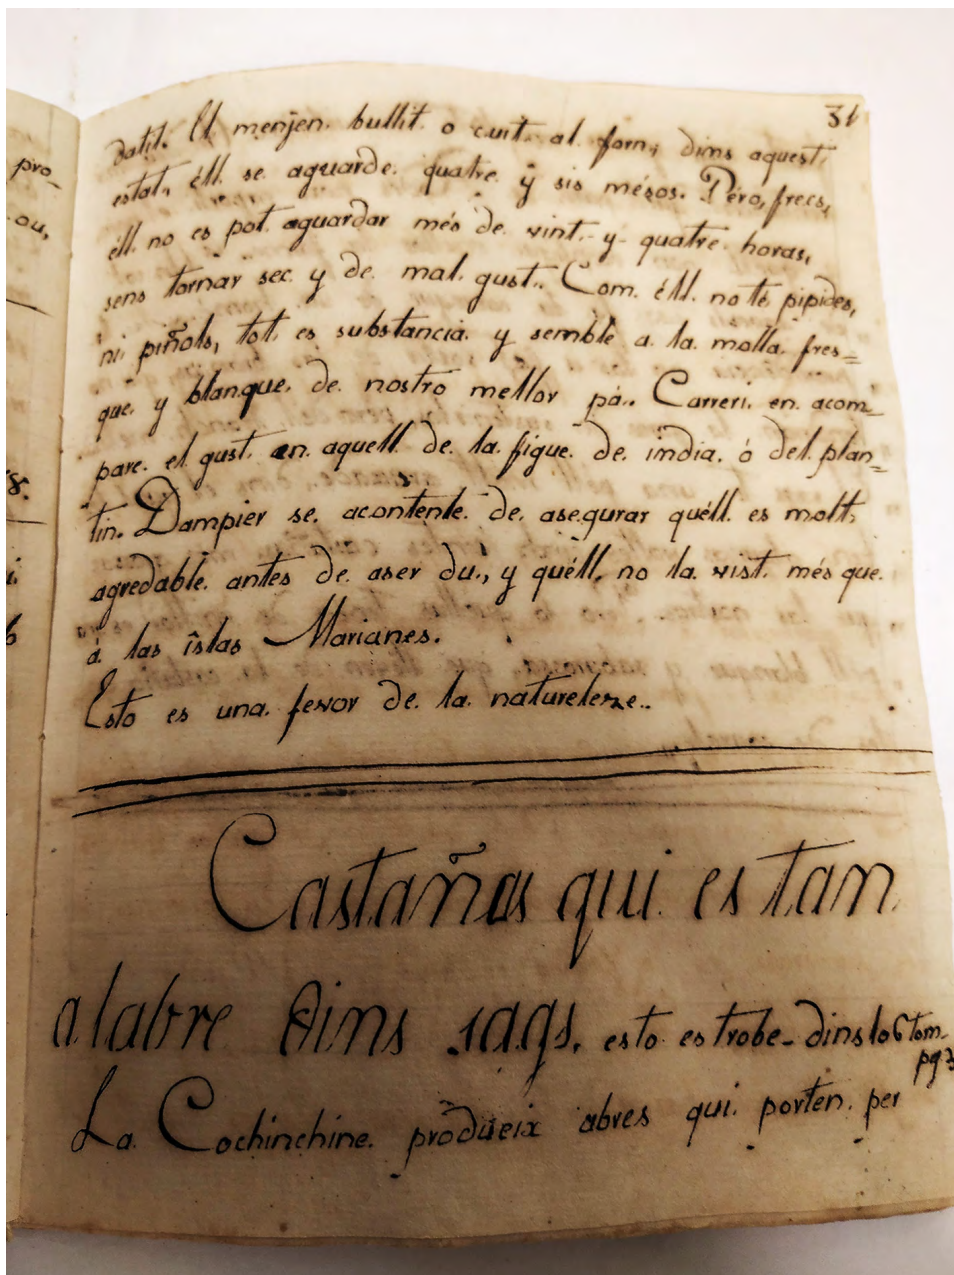 31
datil. El menjen. bullit. o cuit. al. forn, dins aquest.
estat, éll. se. aguarde. quatre. ÿ sis mésos. Péro, frecs,
éll. no es pot. aguardar més de. vint.-y-quatre. horas,
sens tornar sec. y de. mal. gust.. Com. éll. no té pipides,
ni. piñols, tot. es substancia. y semble a. la. molla. fres=
que. y blanque. de. nostro mellor pa.. Carreri. en. acom_
pare. el gust. en. aquell de. la. figue. de. india. ó del. plan=
tin. Dampier se. acontente. de. asegurar quéll. es molt.
agredable. antes de. aser du., y quéll, no la. vist. més que.
á. las îslas Marianes.
Esto es una. fevor de. la. natureleze..
Castañas qui. es tan
alabre dins sags. esto. es trobe dins lo 6 tom.
pg. 3
La. Cochinchine. produeix abres qui. porten. per
pro_
ou,